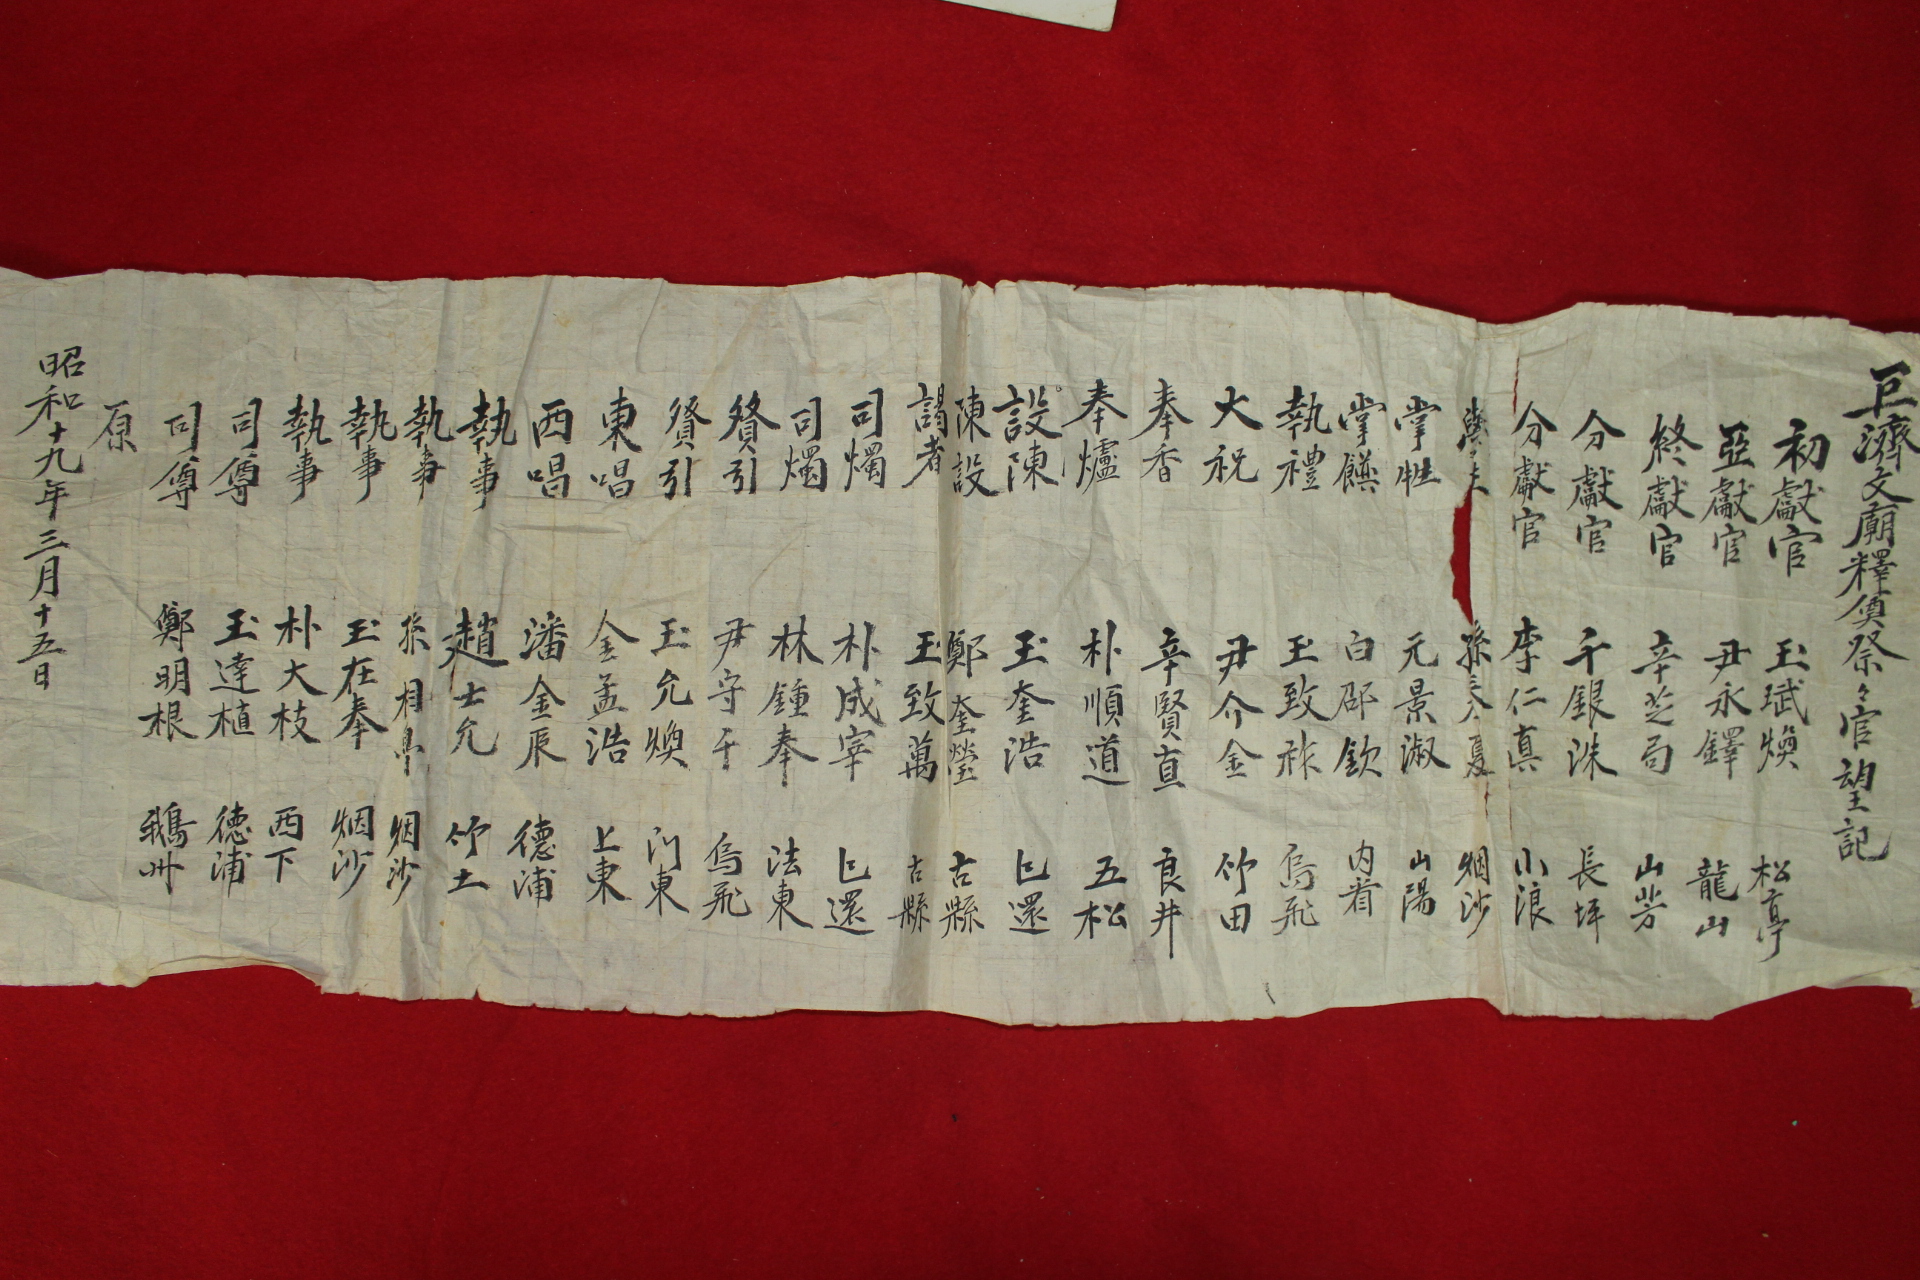 巨濟文廟釋奠祭々官望記
初獻官 玉珷煥 松亭
亞獻官 尹永鐸 龍山
終獻官 辛芝局 山芳
分獻官 千銀洙 長坪
分獻官 李仁真 小浪
孫 夏 烟沙
掌牲 元景淑 山陽
掌饌 白邵欽 内看
執禮 玉致祚 烏飛
大祝 尹介金 竹田
奉香 辛賢直 良井
奉爐 朴順道 五松
設陳 玉奎浩 匕還
陳設 鄭奎瑩 古縣
謁者 玉致萬 古縣
司燭 朴成宰 匕還
司燭 林鍾奉 法東
賛引 尹守千 烏飛
賛引 玉允煥 门東
東唱 金孟浩 上東
西唱 潘金辰 德浦
執事 趙士允 竹土
執事 孫相 烟沙
執事 玉在奉 烟沙
執事 朴大枝 西下
司尊 玉達植 德浦
司尊 鄭明根 鵝州
原
昭和十九年三月十五日